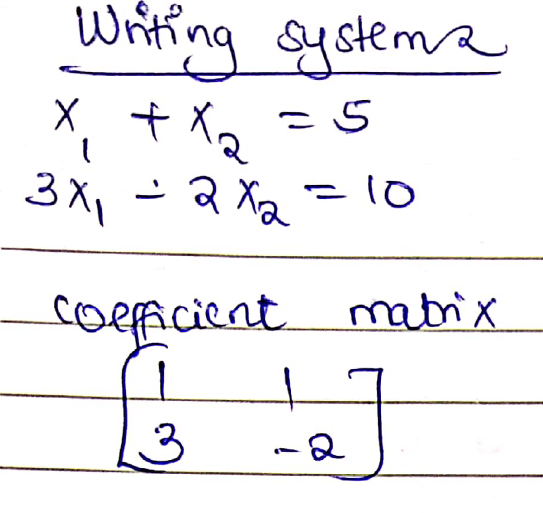 Writing systems
x₁ + x₂ = 5
3x₁ - 2x₂ = 10
coefficient matrix
[1 1
3 -2]